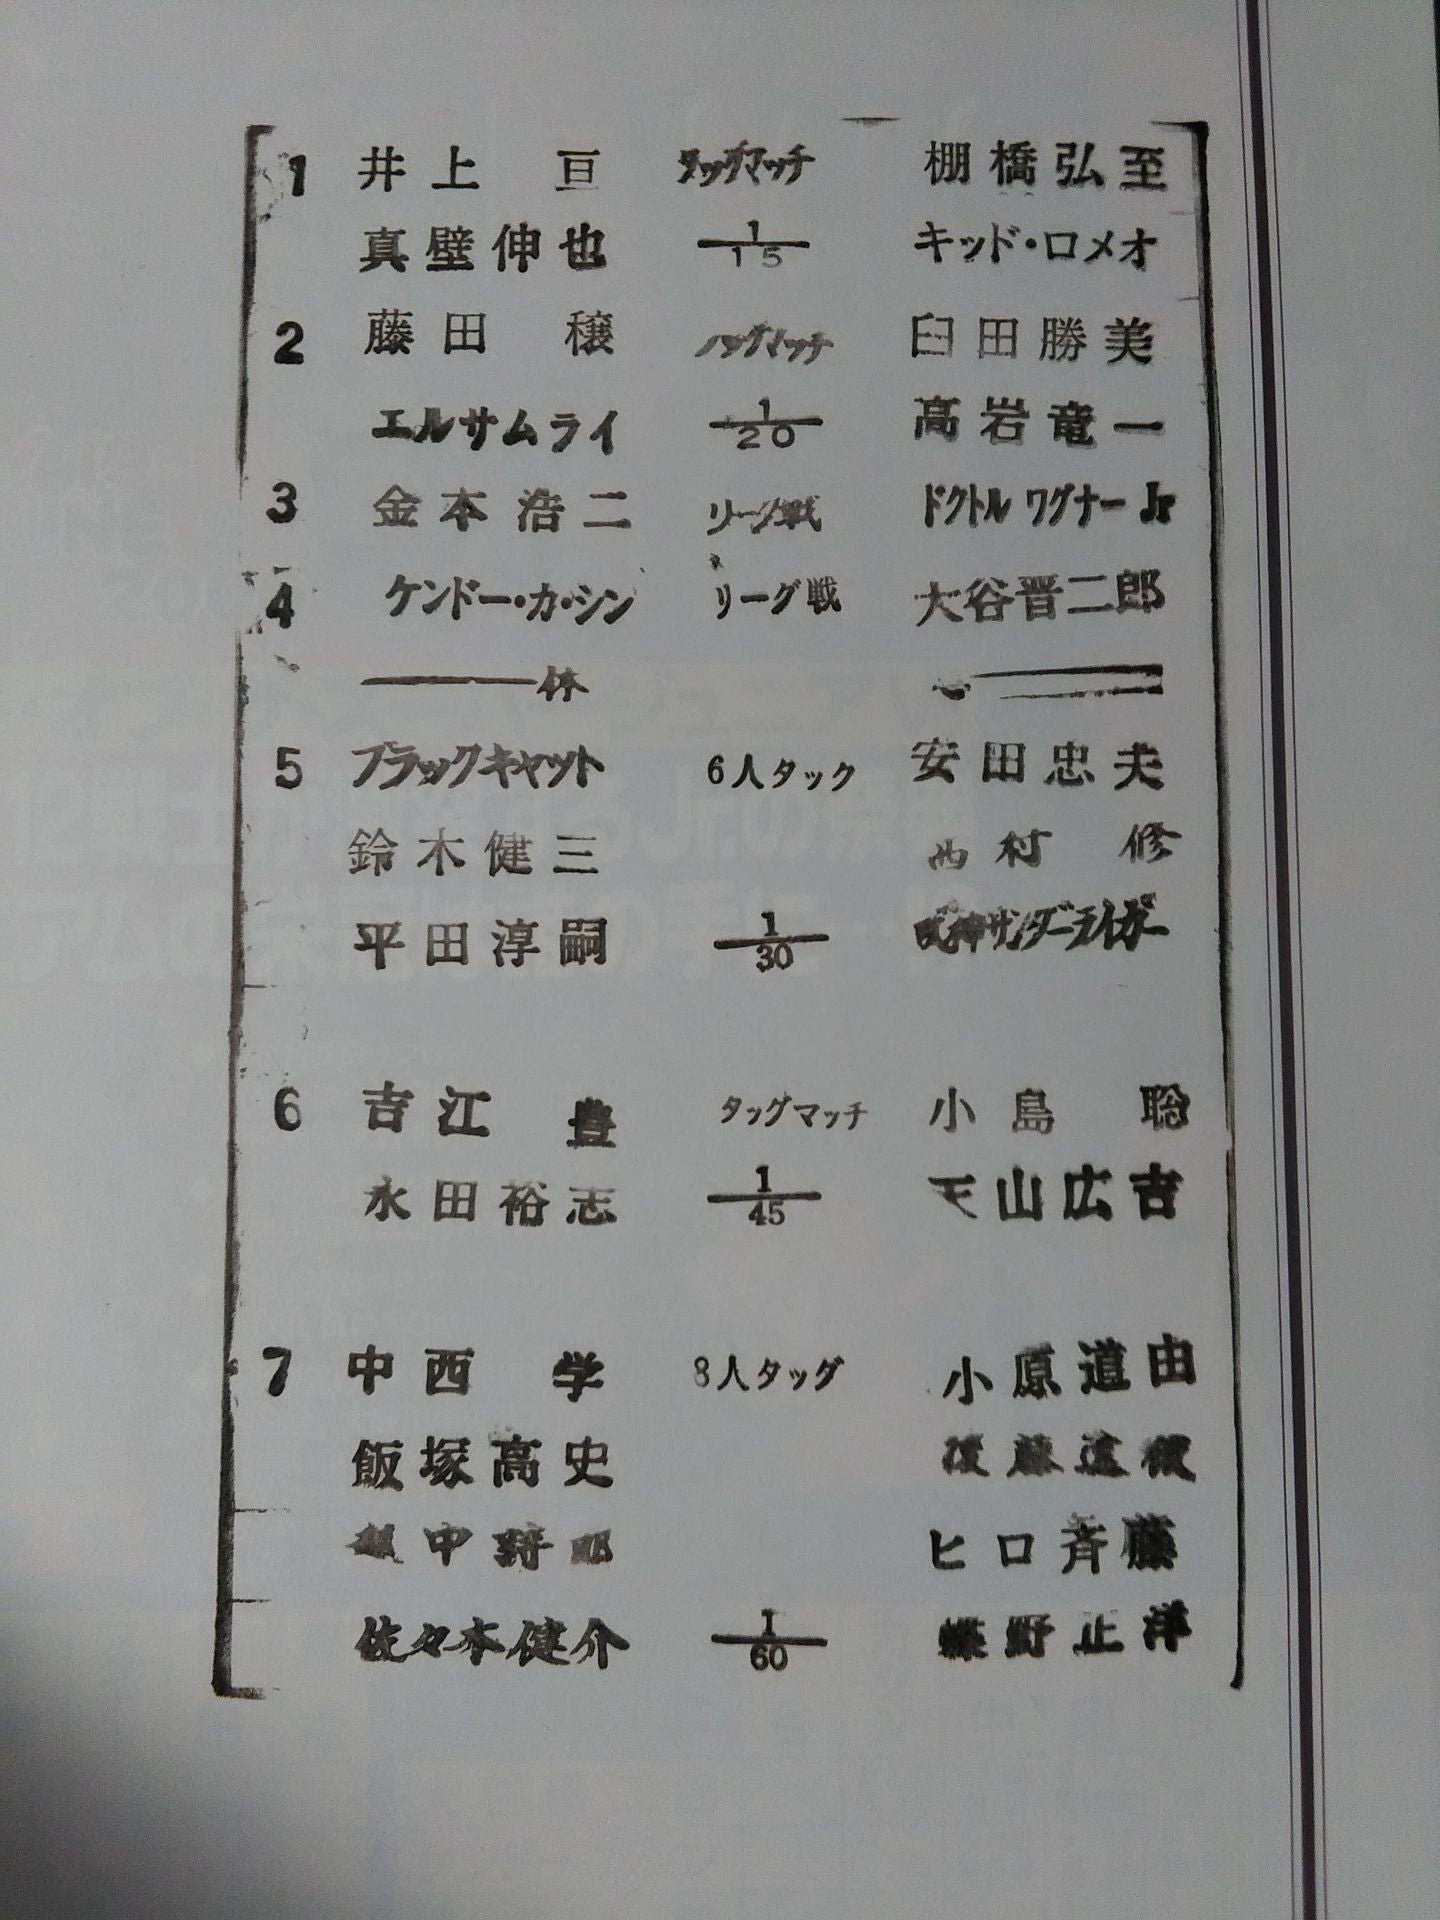 1 井上 亘 タッグマッチ 棚橋弘至
真壁伸也 1/15 キッド・ロメオ
2 藤田 穣 タッグマッチ 臼田勝美
エルサムライ 1/20 高岩竜一
3 金本浩二 リーグ戦 ドクトル ワグナー Jr
4 ケンドー・カ・シン リーグ戦 大谷晋二郎
休
5 ブラックキャット 6人タック 安田忠夫
鈴木健三 西村 修
平田淳嗣 1/30 獣神サンダーライガー
6 吉江 豊 タッグマッチ 小島 聡
永田裕志 1/45 天山広吉
7 中西 学 8人タッグ 小原道由
飯塚高史 後藤達俊
越中詩郎 ヒロ斉藤
佐々木健介 1/60 蝶野正洋